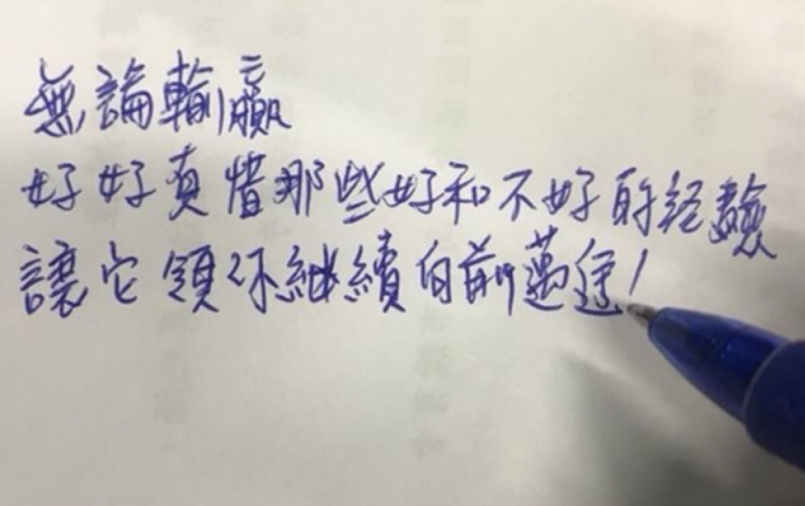 無論輸贏
好好真惜那些好和不好的經驗
讓它領你繼續向前邁進!